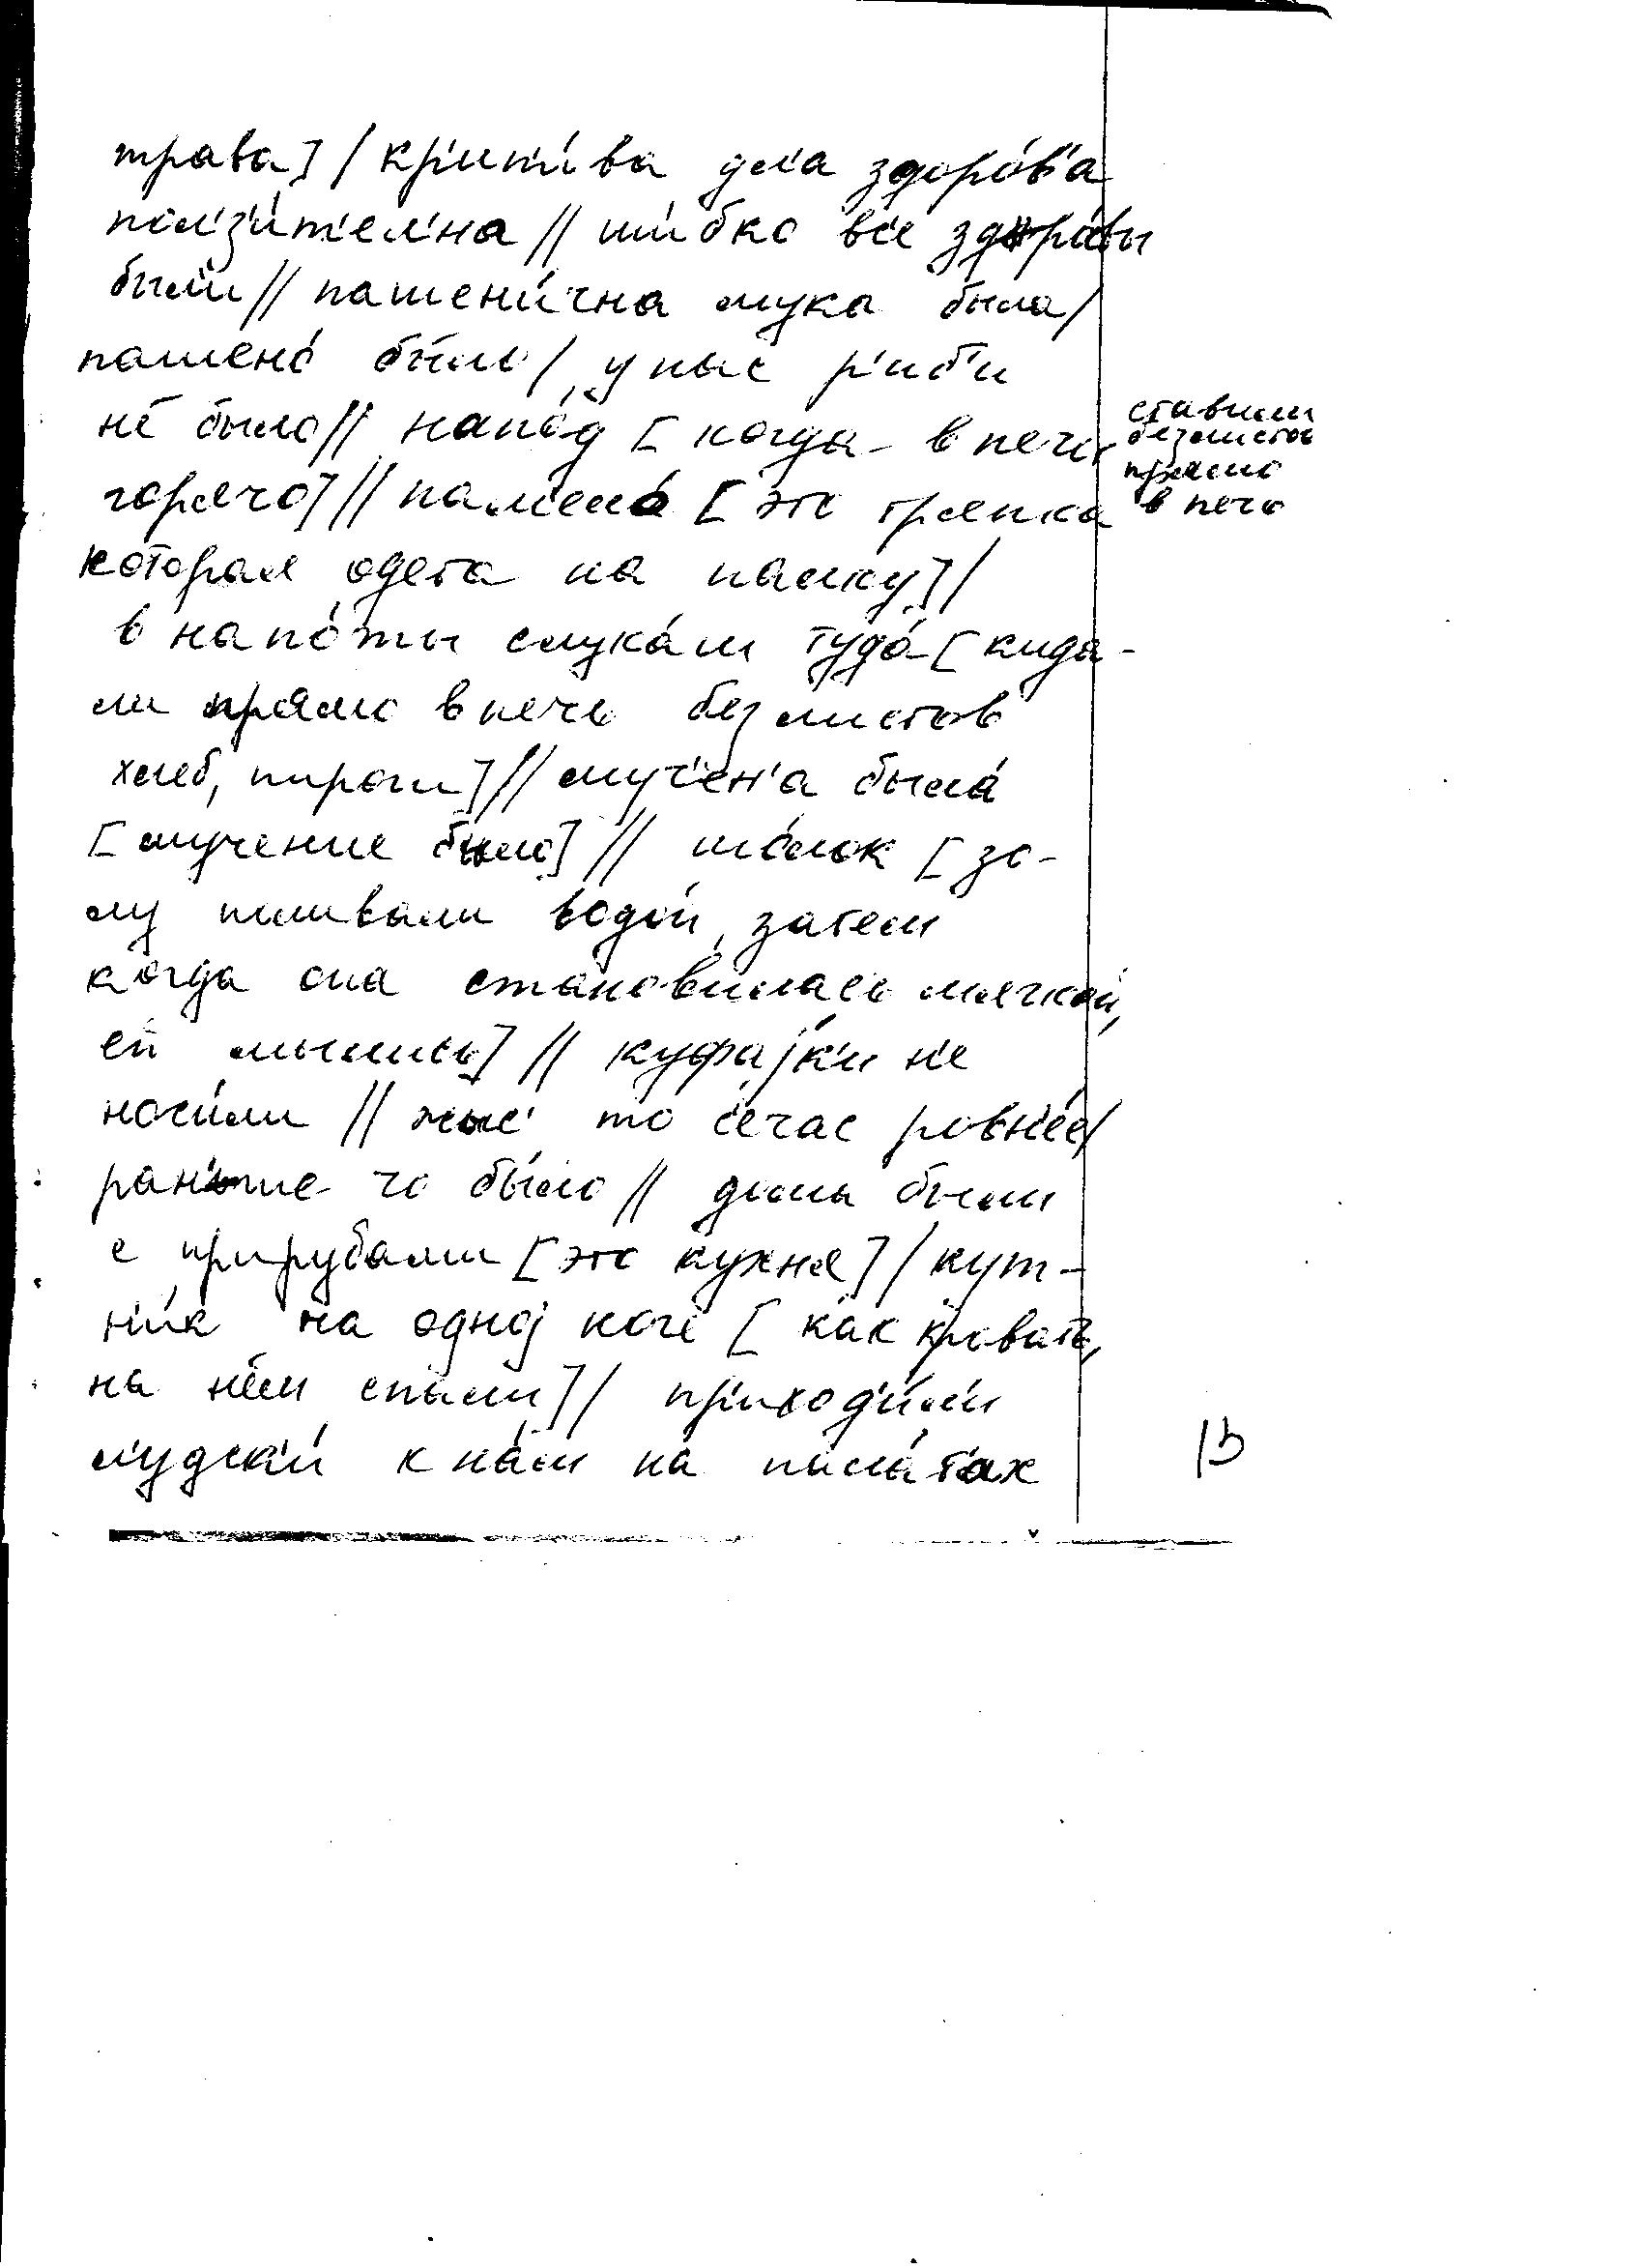 трава] / кр'ип'и́ва дл'а здоро́в'а
пол'з'и́т'ел'на // ши́бко вс'е здоро́вы
были // пашени́чна мука была /
пашено́ бы́ло / у нас р'иб'и
не́ было // напо́д [когда в печи
горячо] // памело́ [это тряпка
которая одета на палку] /
в напо́ты слука́ли туда́ [кида-
ли прямо в печь без листов
хлеб, пироги] // муч'ен'а была́
[мучение было] // шо́лок [зо-
лу поливали водой, затем
когда она становилась мягкой,
ей мылись] // куфаjк'и н'е
носи́ли // то с'ечас ровн'е́е /
ран'ше чо бы́ло // дома были
с прирубами [это кухня] / кут-
ник на одноj ноге [как кровать,
на нём спали] / пр'иход'и́л'и
лудск'и́ к на́м на пала́тах
ставили
без листов
прямо
в печь
13